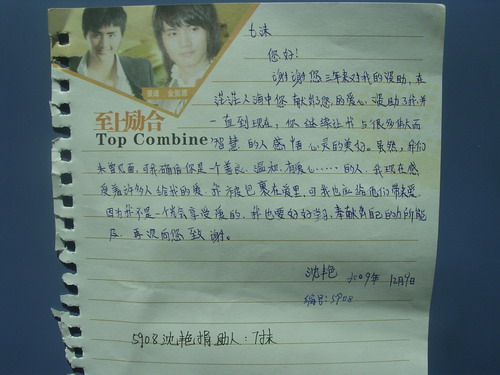 七沫
您好!
谢谢您三年来对我的资助,在
茫茫人海中您献出了您的爱心,资助了我并
一直到现在,你继续让我与很多
智慧的人感悟心灵的美好。虽然,我们
未曾见面,可我确信你是一个善良、温和、有爱心……的人,我现在感
受着许多人给我的爱,我不是包裹在爱里,可我也应给他们带去爱,
因为我不是一个只会享受爱的,我也要好好学习,奉献我自己的力所能
及。再次向您致谢。
沈艳 2009年 12月9日
编号:5908
5908 沈艳 捐助人:七沫
至上励合
Top Combine